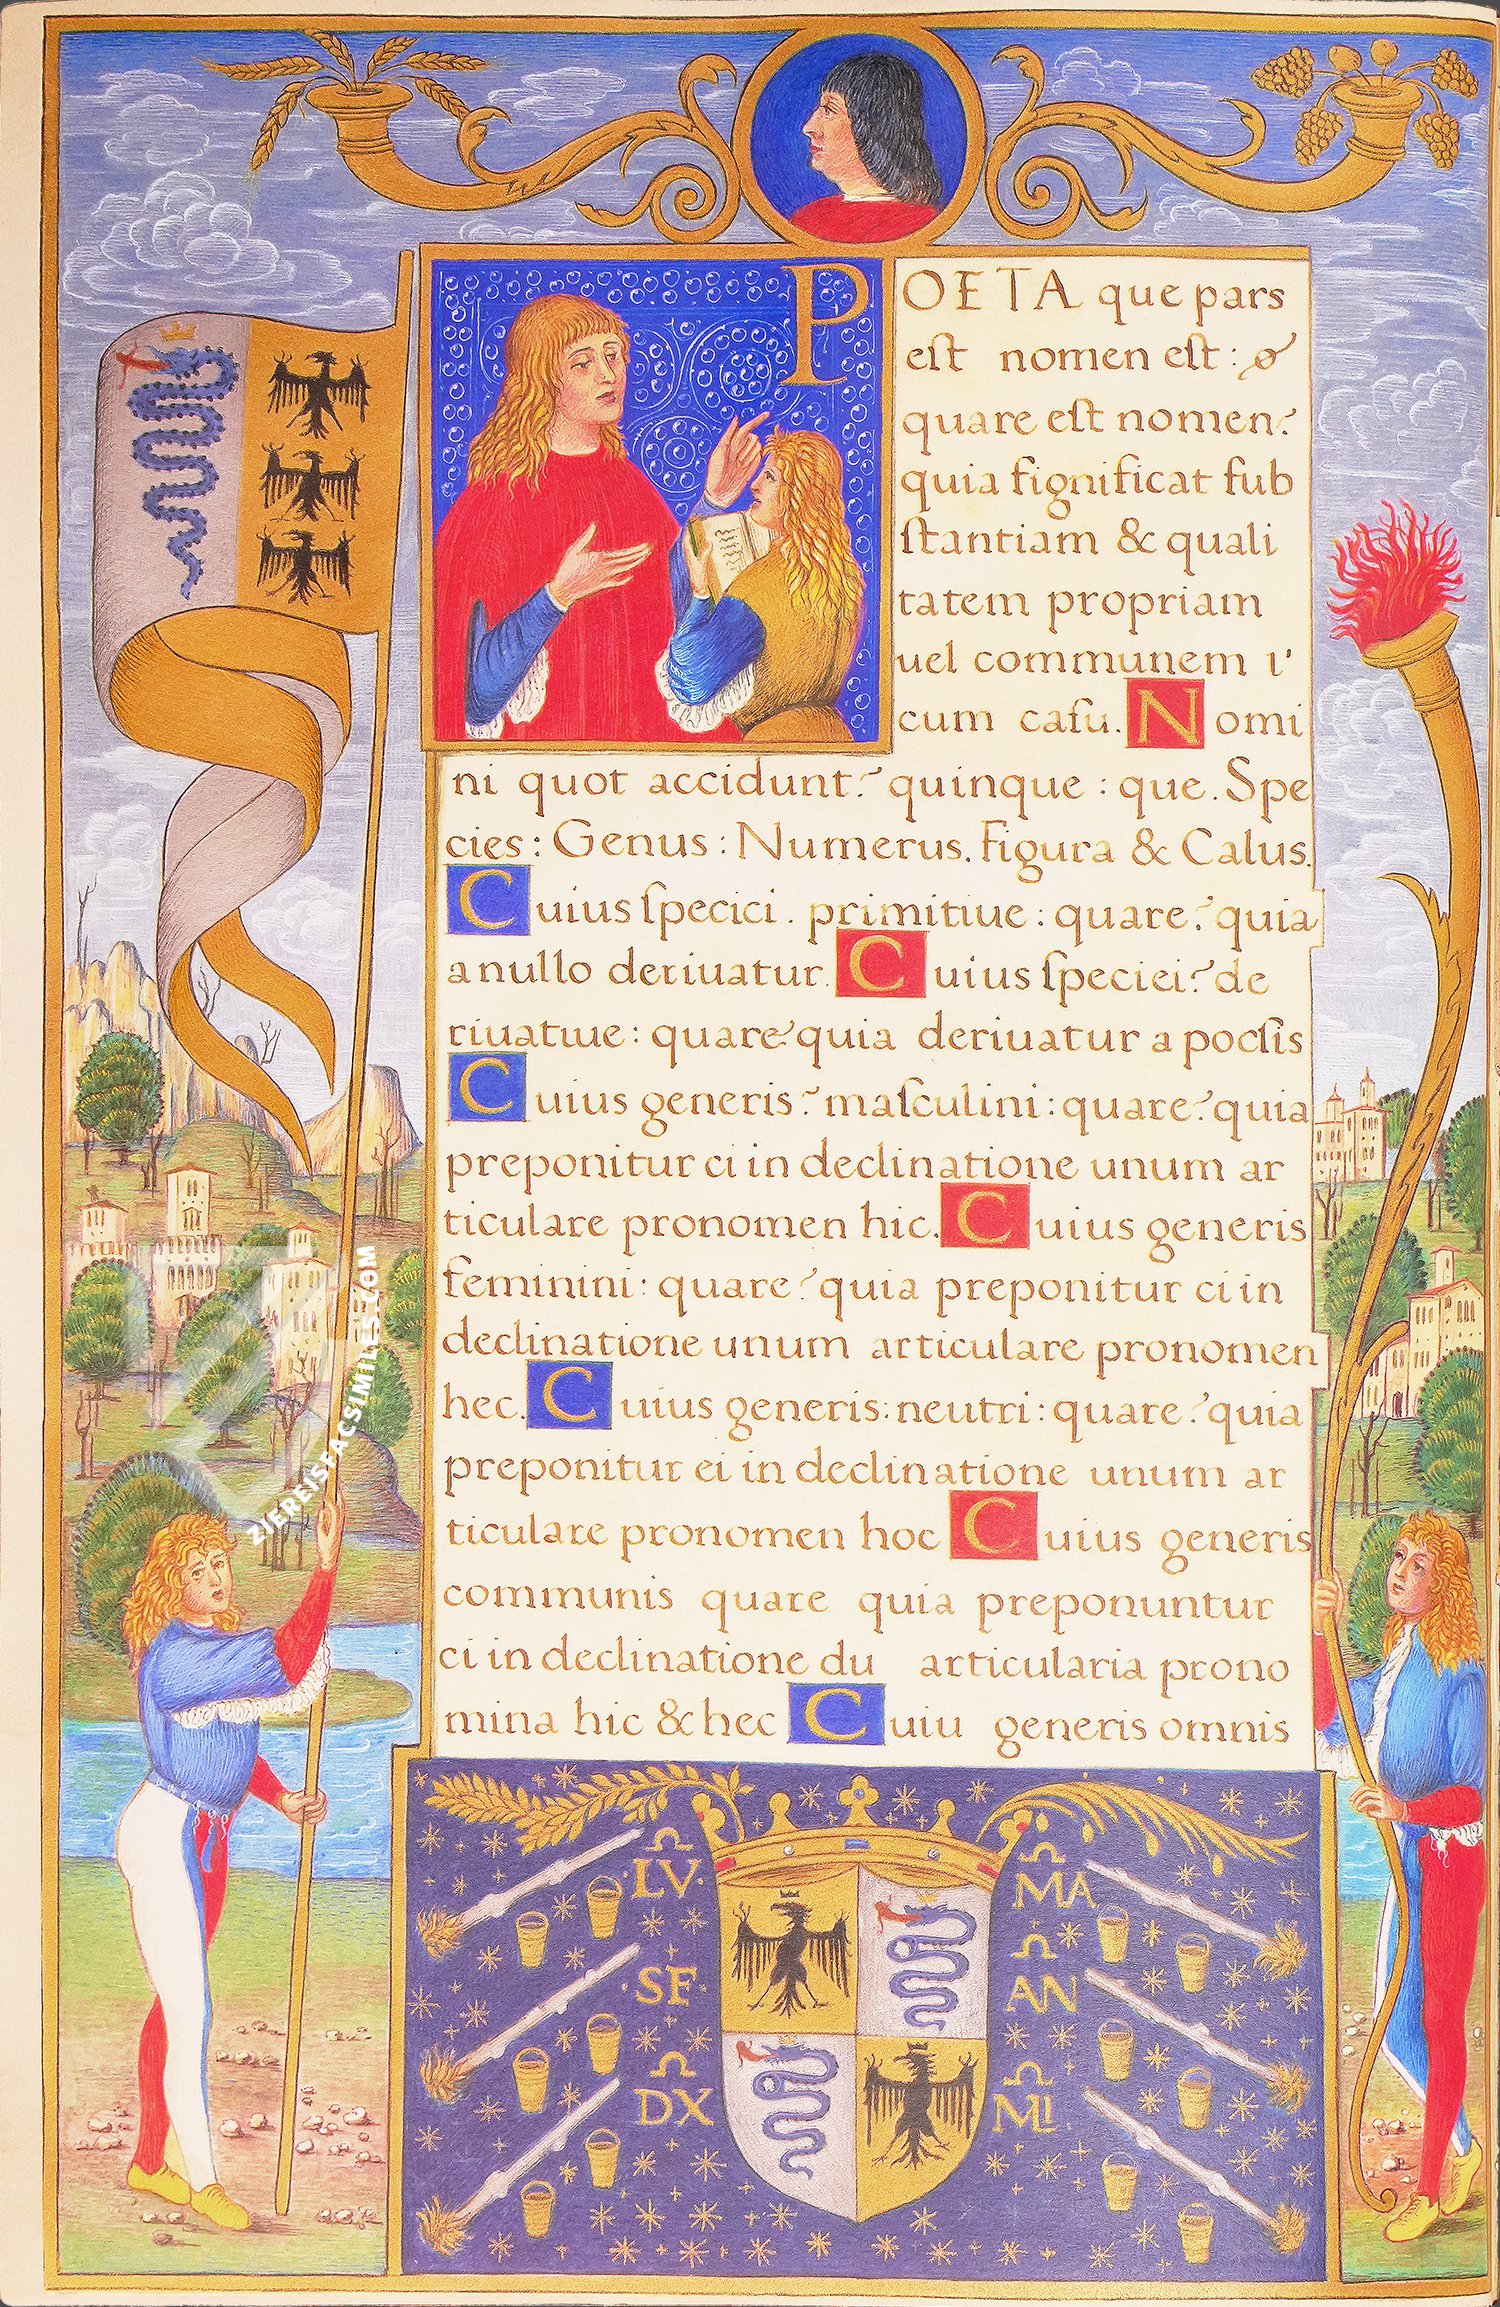 POETA que pars
est nomen est:
quare est nomen?
quia significat sub
stantiam & quali
tatem propriam
uel communem ı'
cum casu. Nomi
ni quot accidunt? quinque : que. Spe
cies : Genus : Numerus. Figura & Casus.
Cuius specici. primitiue : quare? quia
a nullo deriuatur. Cuius speciei? de
riuatiue : quare? quia deriuatur a poesis
Cuius generis? masculini : quare? quia
preponitur ei in declinatione unum ar
ticulare pronomen hic. Cuius generis
feminini : quare? quia preponitur ei in
declinatione unum articulare pronomen
hec. Cuius generis: neutri : quare? quia
preponitur ei in declinatione unum ar
ticulare pronomen hoc Cuius generis
communis quare quia preponuntur
ei in declinatione du articularia prono
mina hic & hec Cuiu generis omnis
·LV·
·SF·
DX
MA
AN
MI
ZIEREISFACSIMILES.COM